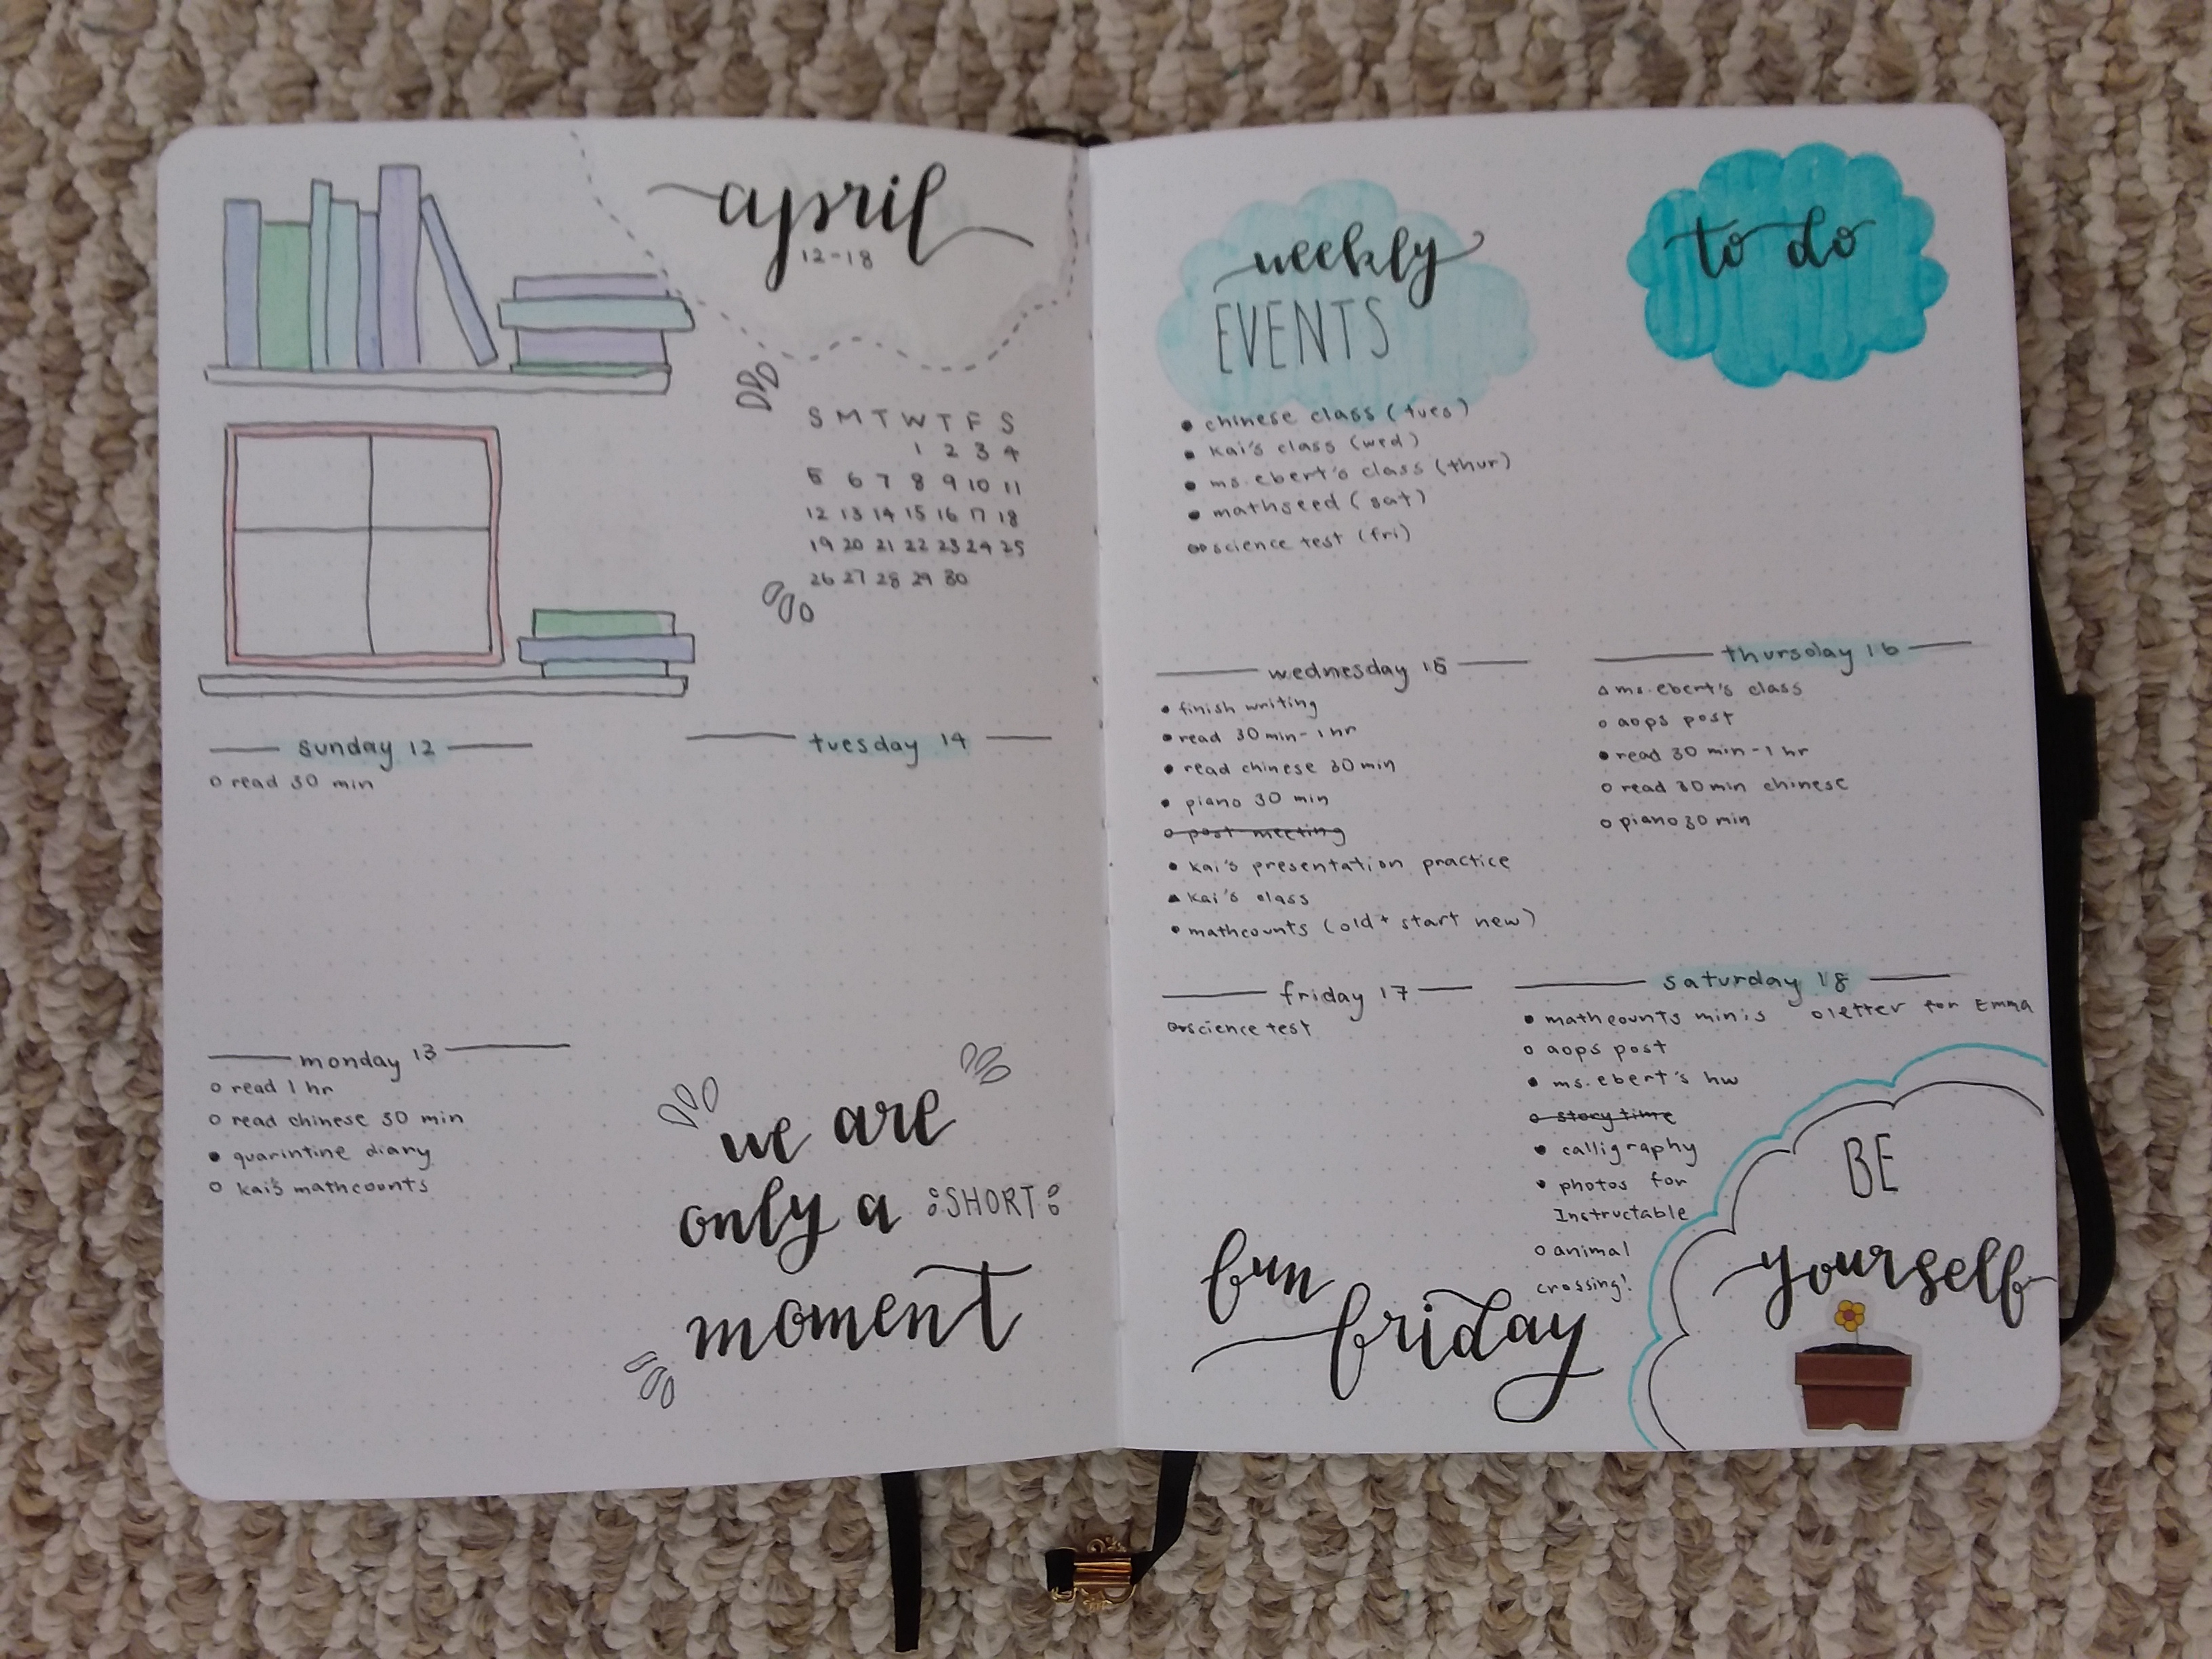 april
12-18
S M T W T F S
1 2 3 4
5 6 7 8 9 10 11
12 13 14 15 16 17 18
19 20 21 22 23 24 25
26 27 28 29 30
sunday 12
read 30 min
monday 13
read 1 hr
read chinese 30 min
quarintine diary
kai's mathcounts
tuesday 14
we are
only a SHORT
moment
weekly
EVENTS
chinese class (tues)
kai's class (wed)
ms. ebert's class (thur)
mathseed (sat)
science test (fri)
to do
wednesday 15
finish writing
read 30 min-1 hr
read chinese 30 min
piano 30 min
post meeting
kai's presentation practice
kai's class
mathcounts (old + start new)
thursday 16
ms. ebert's class
aops post
read 30 min-1 hr
read 30 min chinese
piano 30 min
friday 17
science test
fun
friday
saturday 18
mathcounts minis
letter for Emma
aops post
ms. ebert's hw
story time
calligraphy
photos for
Instructable
animal
crossing!
BE
yourself